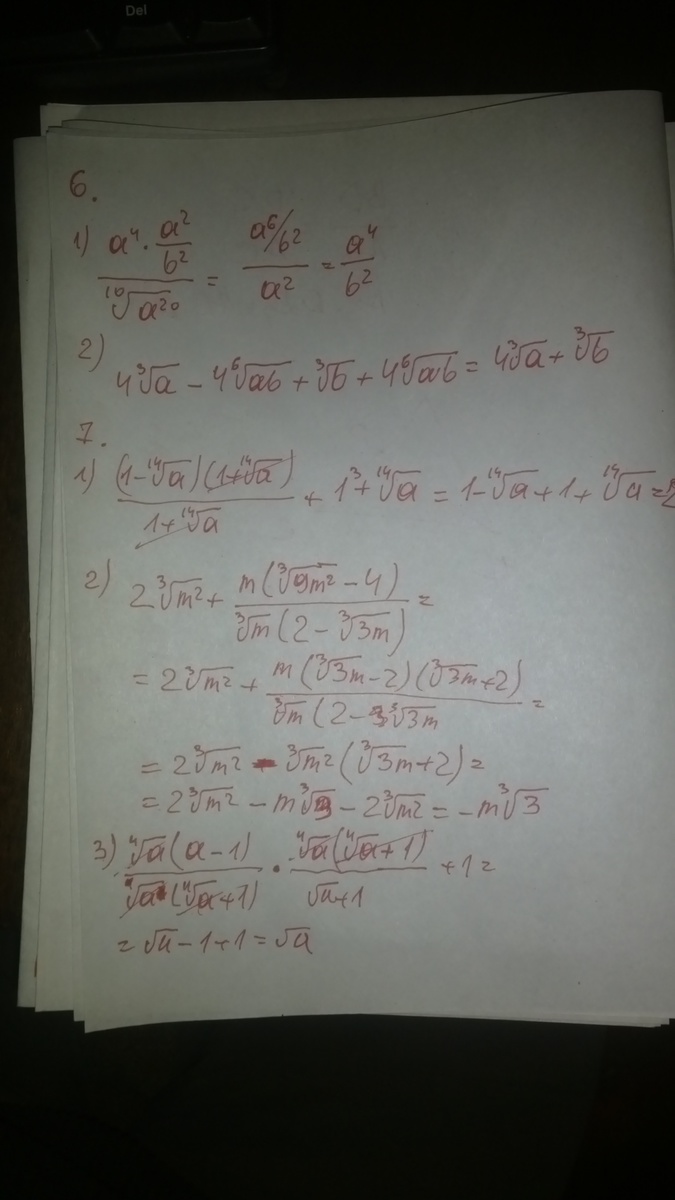 Del
6.
1) (a⁴ · a²/b²)/(¹⁰√a²⁰) = (a⁶/b²)/a² = a⁴/b²
2)
4∛a − 4⁶√ab + ∛b + 4⁶√ab = 4∛a + ∛b
7.
1) ((1−¹⁴√a)(1+¹⁴√a))/(1+¹⁴√a) + 1³+¹⁴√a = 1−¹⁴√a + 1 + ¹⁴√a = 2
2) 2∛m² + (m(∛9m² − 4))/(∛m(2 − ∛3m)) =
= 2∛m² + (m(∛3m − 2)(∛3m + 2))/(∛m(2 − ∛3m =
= 2∛m² − ∛m²(∛3m + 2) =
= 2∛m² − m∛3 − 2∛m² = −m∛3
3) (⁴√a(a − 1))/(⁴√a(⁴√a + 1)) · (⁴√a(⁴√a + 1))/(√a + 1) + 1 =
= √a − 1 + 1 = √a